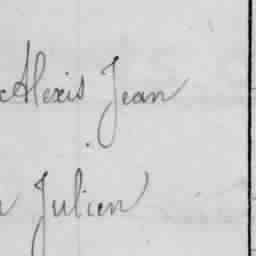 Alexis Jean
Julien